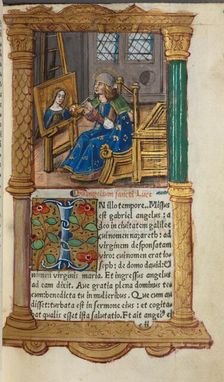 Euangelium sancti Luce
IN illo tempore. Missus
est gabriel angelus: a
deo in ciuitatem galilee
cui nomen nazareth: ad
virginem desponsatam
viro: cui nomen erat io
seph: de domo dauid: Et
nomen virginis maria. Et ingressus angelus
ad eam dixit. Aue gratia plena dominus
tecum benedicta tu in mulieribus. Que cum au
disset: turbata est in sermone eius: et cogita
bat qualis esset ista salutatio. Et ait angelus